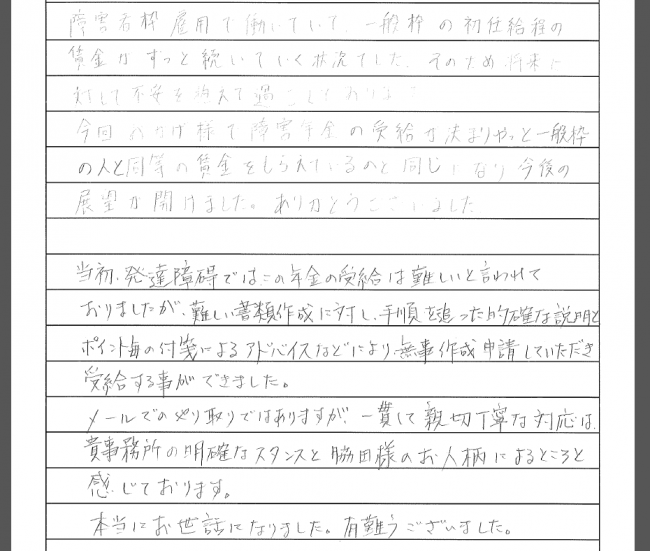 障害者枠雇用で働いていて、一般枠の初任給程の
賃金がずっと続いていく状況でした。そのため将来に
対して不安を
今回おかげ様で障害年金の受給が決まりやっと一般枠
の人と同等の賃金をもらえているのと同じになり今後の
展望が開けました。ありがとうございました
当初、発達障碍ではこの年金の受給は難しいと言われて
おりましたが、難しい書類作成に対し、手順を追った的確な説明と
ポイント毎の付箋によるアドバイスなどにより、無事作成申請していただき
受給する事ができました。
メールでのやり取りではありますが、一貫して親切丁寧な対応は、
貴事務所の明確なスタンスと脇田様のお人柄によるところと
感じております。
本当にお世話になりました。有難うございました。